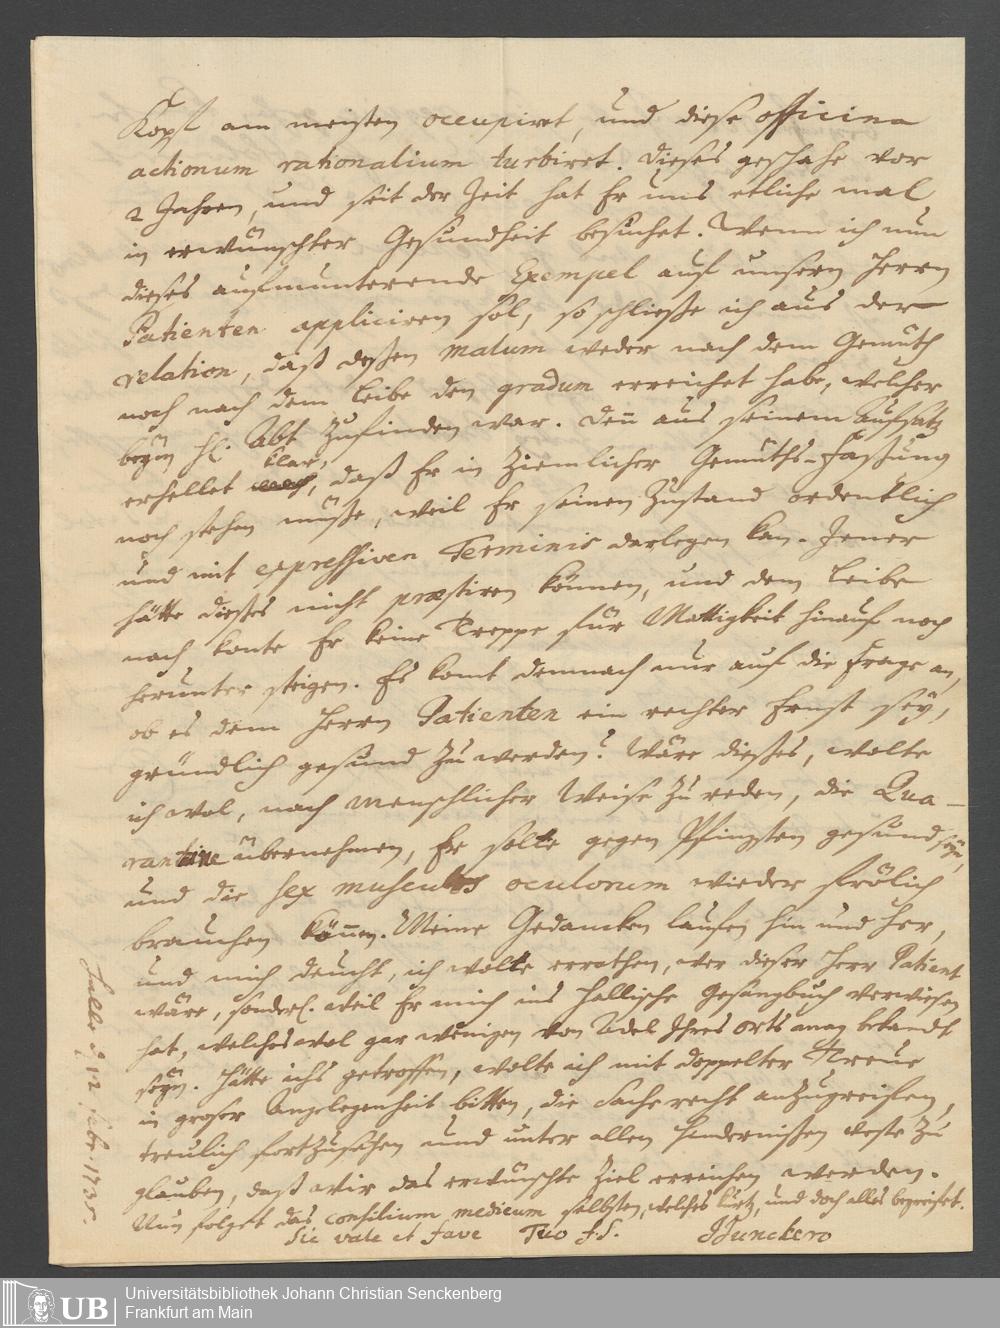 Kopf am meisten occupiret, und diese officina
actionum rationalium turbiret. Dieses geschahe vor
2 Jahren, und seit der Zeit hat Er uns etliche mal
in erwünschter Gesundheit besuchet. Wenn ich nun
dieses aufmunterende Exempel auf unsern Herrn
Patienten appliciren sol, so schließe ich aus der
relation, daß deßen malum weder nach dem Gemüth
noch nach dem Leibe den gradum erreichet habe, welcher
beÿm H: Abt zufinden war. Den̄ aus seinem Aufsatz
erhellet klar, daß Er in ziemlicher Gemüths-Faßung
noch stehen müße, weil Er seinen Zustand ordentlich
und mit expressiven Terminis darlegen kan. Jener
hätte dießes nicht præstiren können, und dem Leibe
nach konte Er keine Treppe für Mattigkeit hinauf noch
herunter steigen. Es komt demnach nur auf die Frage an,
ob es dem Herrn Patienten ein rechter Ernst seÿ,
gründlich gesund zu werden? Wäre dießes, wolte
ich wol, nach menschlicher Weise zu reden, die Qua-
rantine übernehmen, Er solte gegen Pfingsten gesund seÿn,
und die sex musculos oculorum wieder frölich
brauchen kön̄en. Meine Gedancken laufen hin und her,
und mich deucht, ich wolte errathen, wer dieser Herr Patient
wäre, sonderl. weil Er mich ins Hallische Gesangbuch verwiesen
hat, welches wol gar wenigen von Adel Ihres orts mag bekandt
seÿn. Hätte ichs getroffen, wolte ich mit doppelter Treue
in großer Angelegenheit bitten, die Sache recht anzugreifen,
treulich fortzusetzen und unter allen Hindernißen veste zu
glauben, daß wir das erwünschte Ziel erreichen werden.
Nun folget das consilium medicum selbsten, welches kurtz, und doch alles begreifet.
Sic vale et fave Tuo J. J. Junckero
Halle d. 12 Febr. 1735.
Universitätsbibliothek Johann Christian Senckenberg
Frankfurt am Main
UB